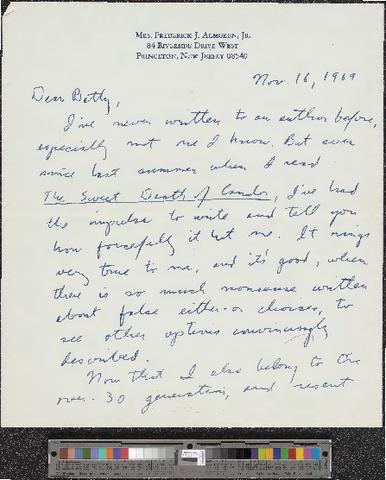 Mrs. Frederick J. Almgren, Jr.
84 Riverside Drive West
Princeton, New Jersey 08540
Nov. 16, 1969
Dear Betty,
I've never written to an author before,
especially not one I know. But ever
since last summer when I read
The Sweet Death of Candor, I've had
the impulse to write and tell you
how forcefully it hit me. It rings
very true to me, and it's good, when
there is so much nonsense written
about false either-or choices, to
see other options convincingly
described.
Now that I also belong to the
over-30 generation, and resent